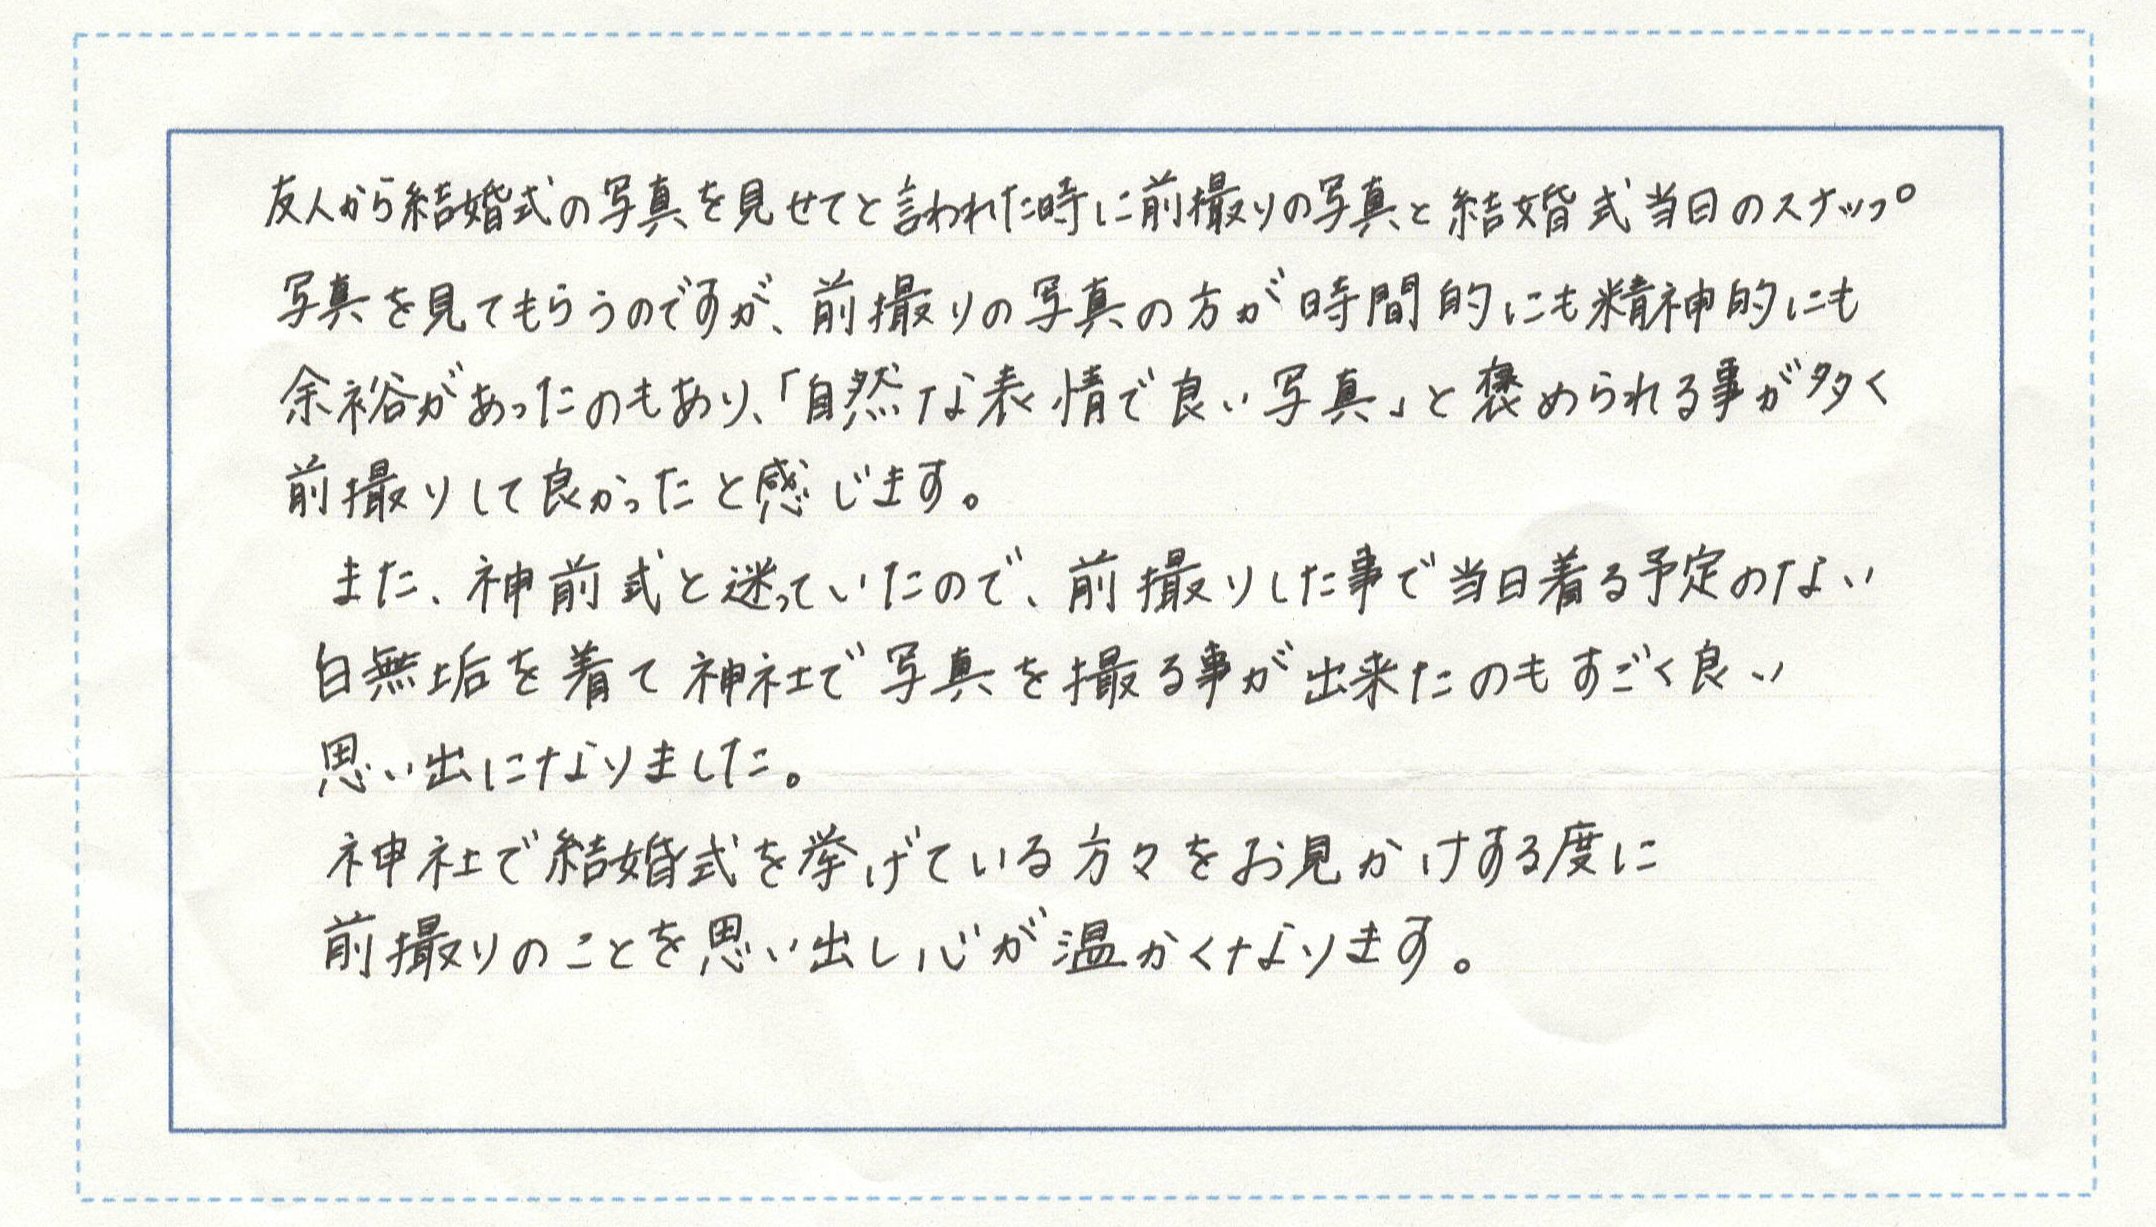 友人から結婚式の写真を見せてと言われた時に前撮りの写真と結婚式当日のスナップ
写真を見てもらうのですが、前撮りの写真の方が時間的にも精神的にも
余裕があったのもあり、「自然な表情で良い写真」と褒められる事が多く
前撮りして良かったと感じます。
また、神前式と迷っていたので、前撮りした事で当日着る予定のない
白無垢を着て神社で写真を撮る事が出来たのもすごく良い
思い出になりました。
神社で結婚式を挙げている方々をお見かけする度に
前撮りのことを思い出し心が温かくなります。